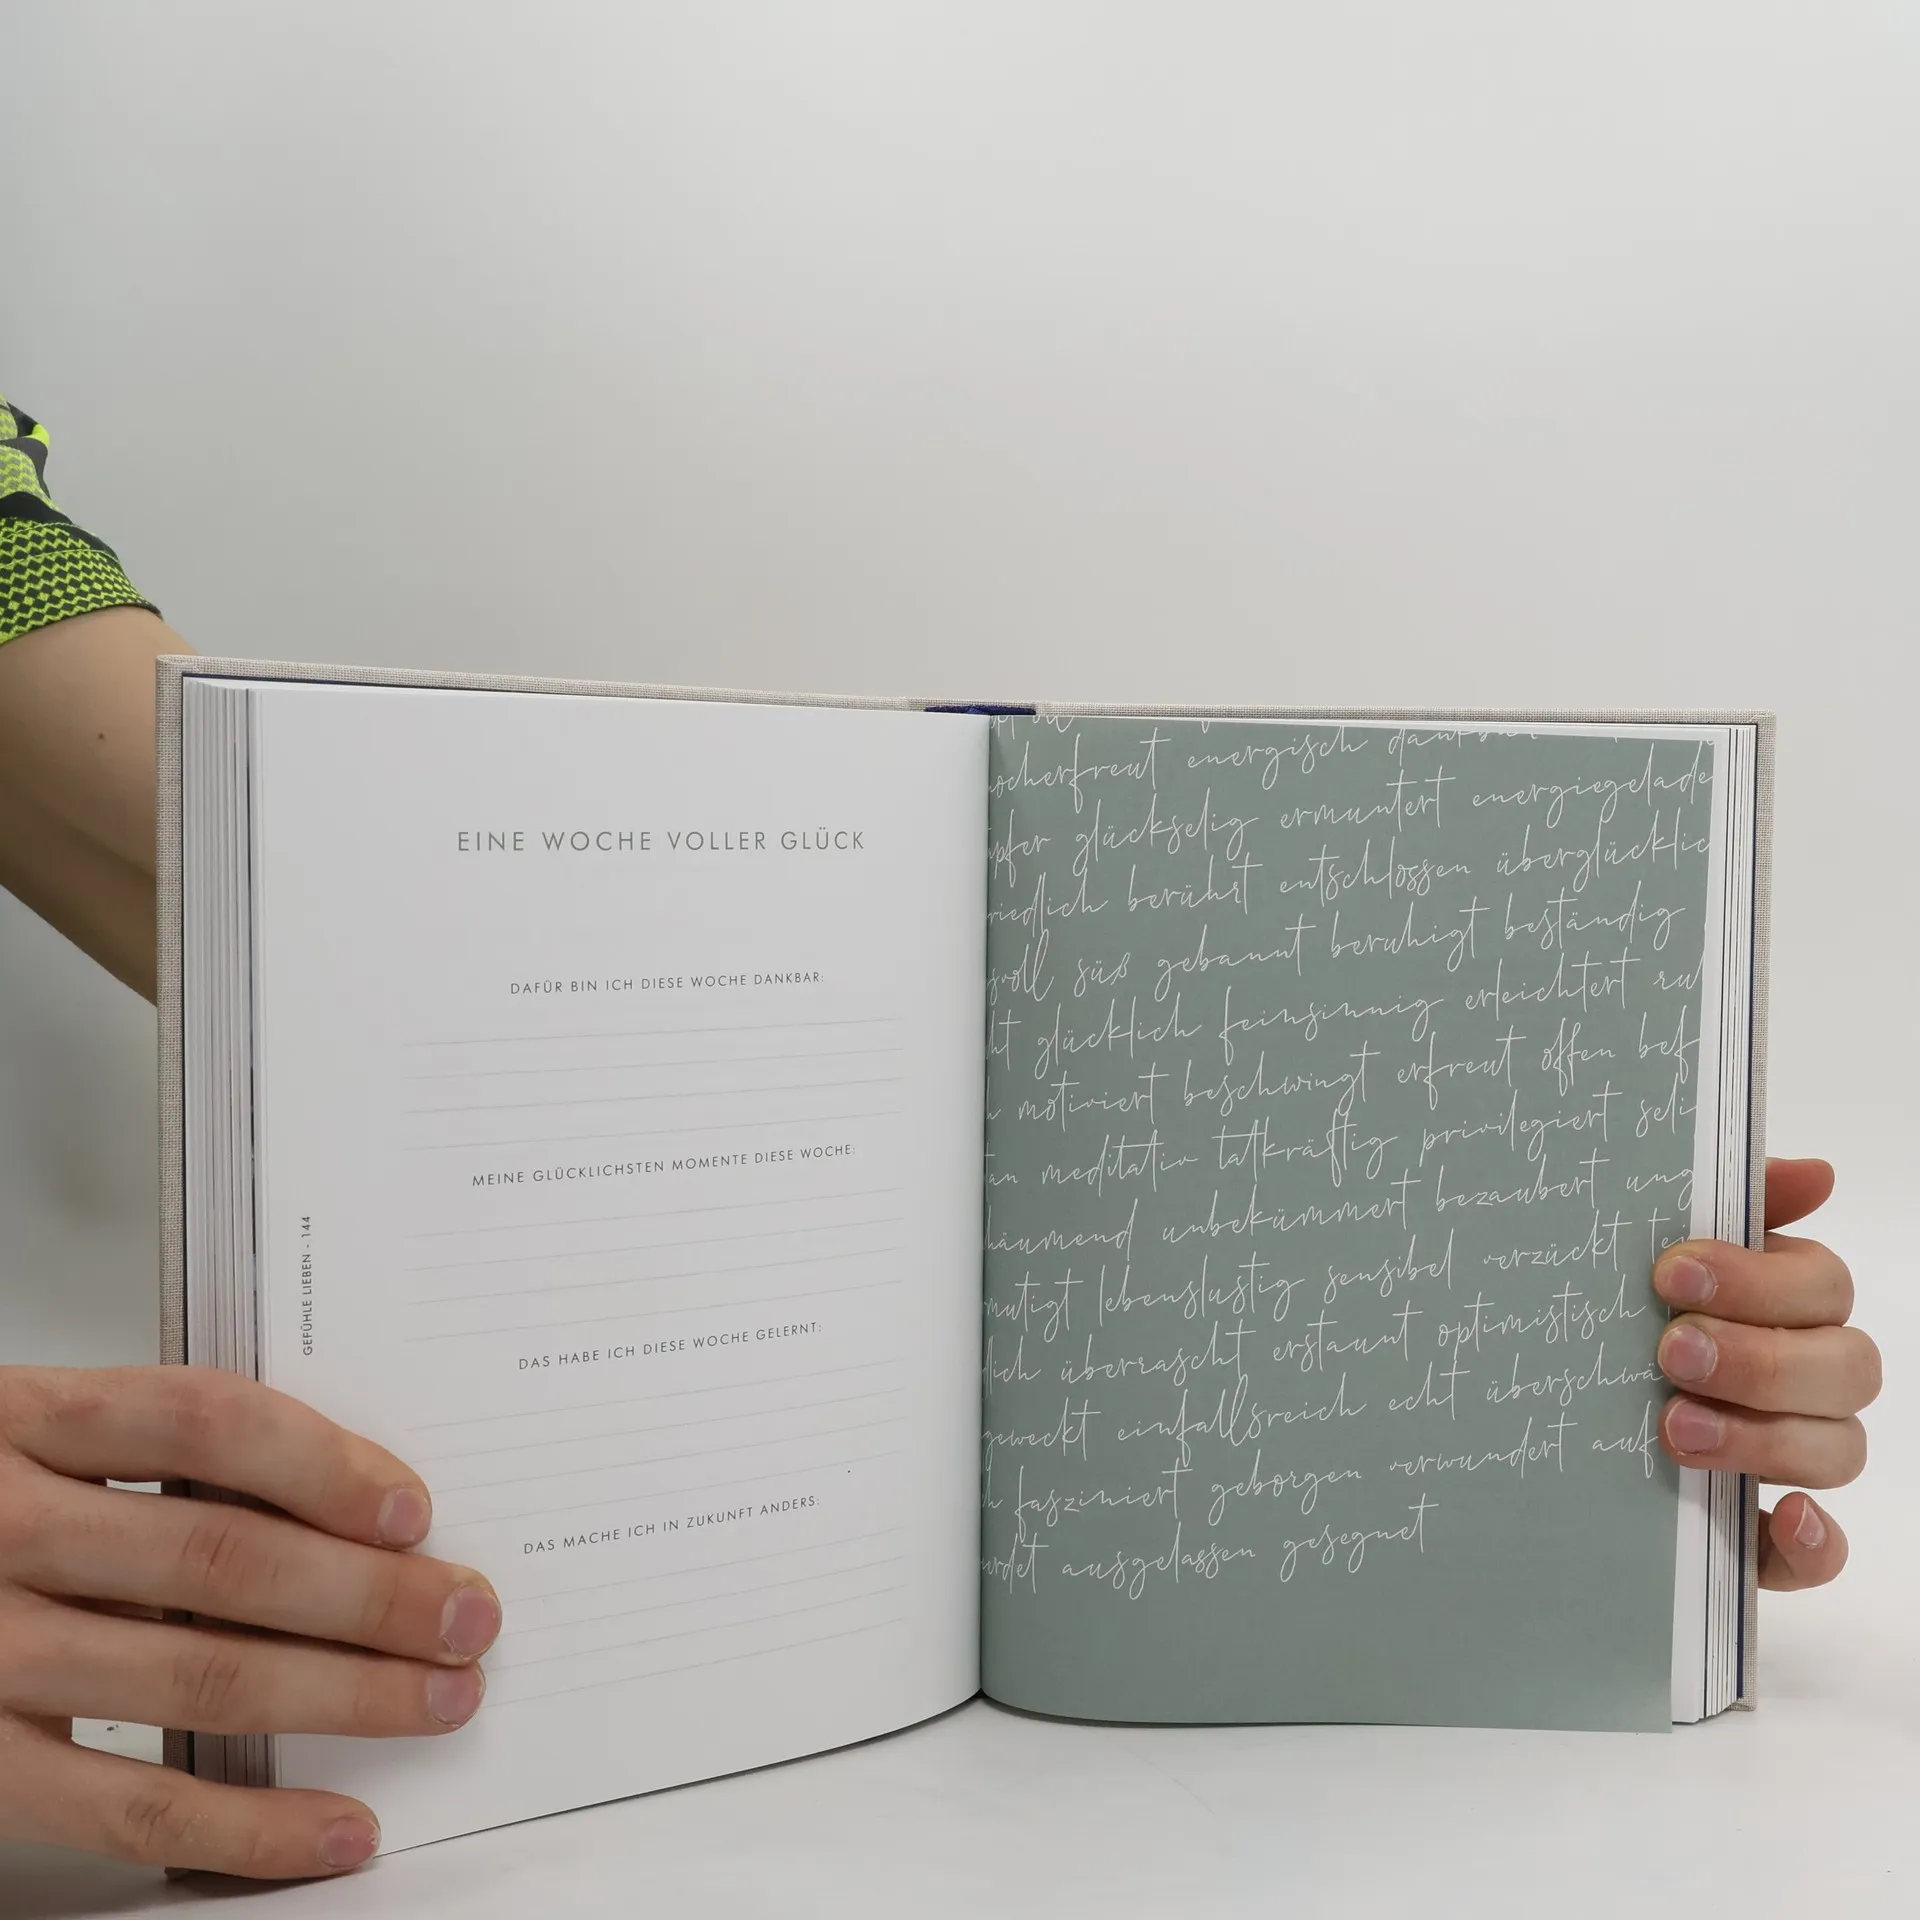 EINE WOCHE VOLLER GLÜCK
DAFÜR BIN ICH DIESE WOCHE DANKBAR:
MEINE GLÜCKLICHSTEN MOMENTE DIESE WOCHE:
DAS HABE ICH DIESE WOCHE GELERNT:
DAS MACHE ICH IN ZUKUNFT ANDERS:
GEFÜHLE LIEBEN - 144
ocherfreut energisch dankbar
pfer glückselig ermuntert energiegelade
riedlich berührt entschlossen überglücklic
svoll süß gebannt beruhigt beständig
ht glücklich feinsinnig erleichtert ru
motiviert beschwingt erfreut offen bef
an meditativ tatkräftig privilegiert seli
häumend unbekümmert bezaubert ung
mutigt lebenslustig sensibel verzückt tei
lich überrascht erstaunt optimistisch
geweckt einfallsreich echt überschwä
h fasziniert geborgen verwundert auf
rdet ausgelassen gesegnet